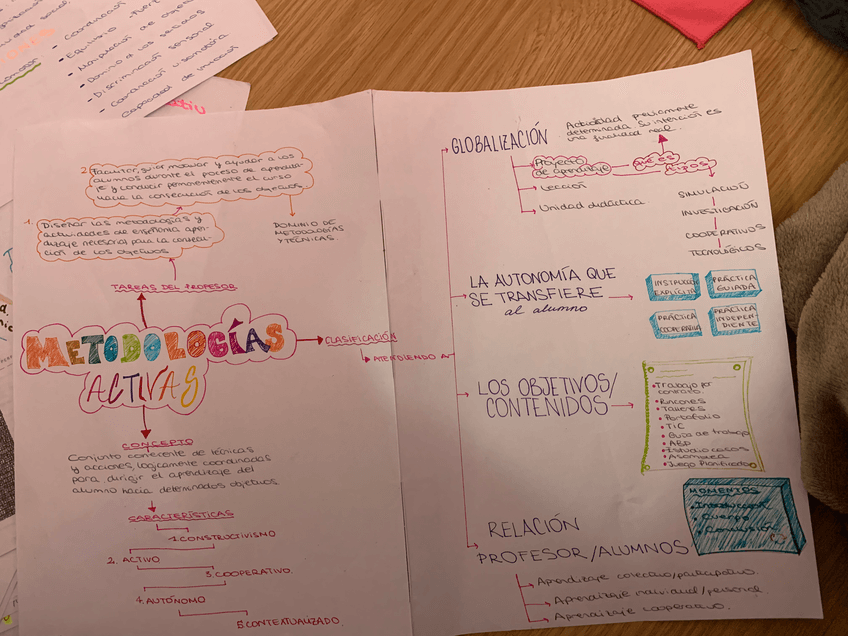 Coordinació
Equilibrio
Discriminació sensorial
2. Facilitar, guiar, motivar y ayudar a los
alumnos durante el proceso de aprendiza-
je y conducir permanentemente el curso
hacia la consecución de los objetivos.
1.
Diseñar las metodologías y
actividades de enseñanza apren-
dizaje necesarias para la consecu-
ción de los objetivos.
DOMINIO DE
METODOLOGÍAS
Y TÉCNICAS.
TAREAS DEL PROFESOR
METODOLOGÍAS
ACTIVAS
CLASIFICACIÓN
ATENDIENDO A
CONCEPTO
Conjunto coherente de técnicas
y acciones, lógicamente coordinadas
para dirigir el aprendizaje del
alumno hacia determinados objetivos.
CARACTERÍSTICAS
1. CONSTRUCTIVISMO
2. ACTIVO
3. COOPERATIVO.
4. AUTÓNOMO
5. CONTEXTUALIZADO
GLOBALIZACIÓN
Actividad previamente
determinada. Su intención es
una finalidad real.
Proyecto
de aprendizaje
QUÉ ES
TIPOS
Lección
Unidad didáctica.
SIMULACIÓN
INVESTIGACIÓN
COOPERATIVOS
TECNOLÓGICOS
LA AUTONOMÍA QUE
SE TRANSFIERE
al alumno
INSTRUCCIÓN
EXPLÍCITA
PRÁCTICA
GUIADA
PRÁCTICA
COOPERATIVA
PRÁCTICA
INDEPEN-
DIENTE
LOS OBJETIVOS/
CONTENIDOS
Trabajo por
contrato.
Rincones
Talleres
Portafolio
TIC
Guía de trabajo
ABP
Estudio casos
Asamblea
Juego Planificado
MOMENTOS
Introducción
Cuerpo
Conclusión
RELACIÓN
PROFESOR/ALUMNOS
Aprendizaje colectivo/participativo.
Aprendizaje individual/personal.
Aprendizaje cooperativo.